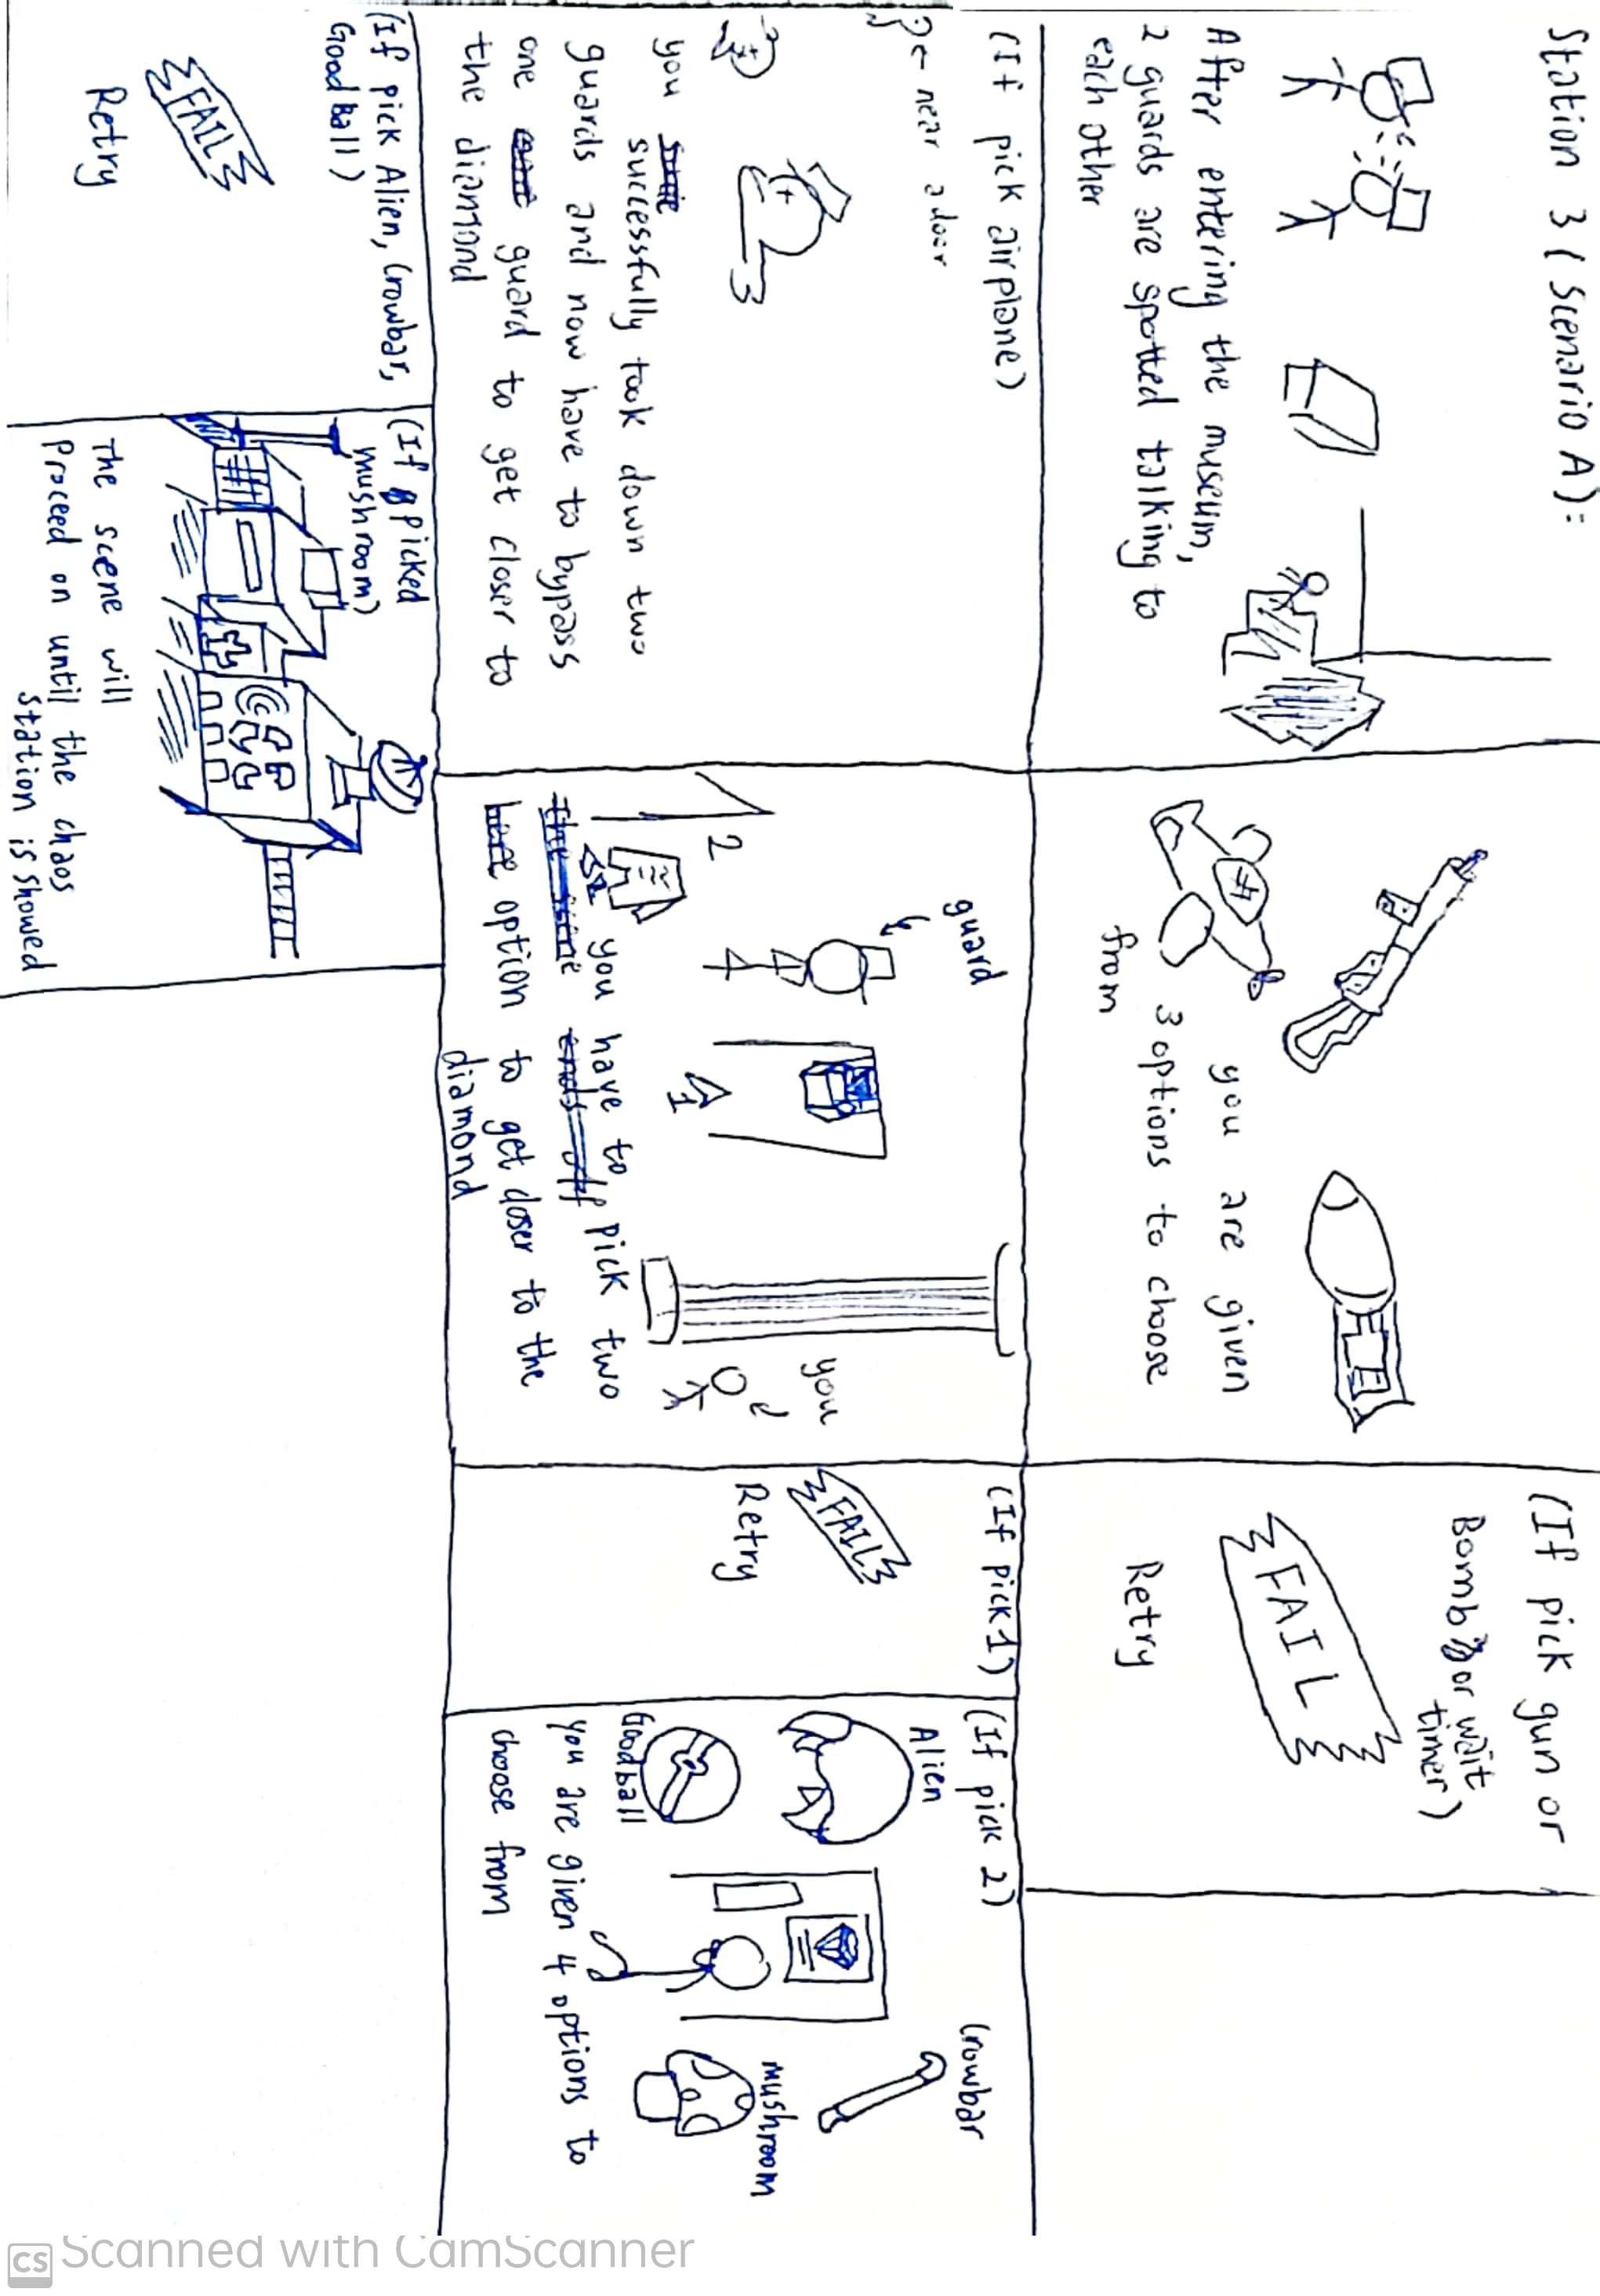 Station 3 (Scenario A):
After entering the museum,
2 guards are spotted talking to
each other
you are given
3 options to choose
from
(If pick gun or
Bomb or wait
timer)
FAIL
Retry
(If pick airplane)
← near a door
you successfully took down two
guards and now have to bypass
one guard to get closer to
the diamond
guard
you
2
1
you have to pick two
option to get closer to the
diamond
(If pick 1)
FAIL
Retry
(If pick 2)
Alien
Crowbar
Goodball
mushroom
you are given 4 options to
choose from
(If pick Alien, Crowbar,
Good Ball)
FAIL
Retry
(If picked
mushroom)
The scene will
Proceed on until the chaos
station is showed
CS Scanned with CamScanner